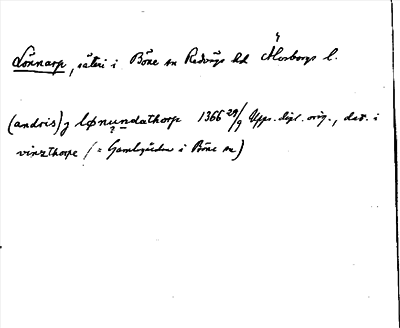 Lönnarp, säteri i Böne sn Redvägs hd Älvsborgs l.
(andris) j lønundathorp 1366 29/9 Upps. dipl. orig., dat. i
vinzthorpe (= Gamlegården i Böne sn)